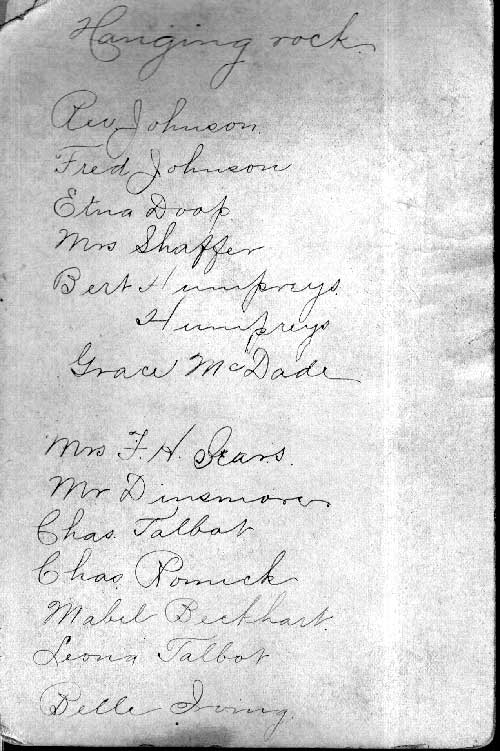 Hanging rock
Rev Johnson
Fred Johnson
Etna Doop
Mrs Shaffer
Bert Humphreys
Humpreys
Grace McDade
Mrs F. H. Sears.
Mr Dinsmore
Chas. Talbot
Chas. Romick
Mabel Beckhart
Leona Talbot
Belle Irving.